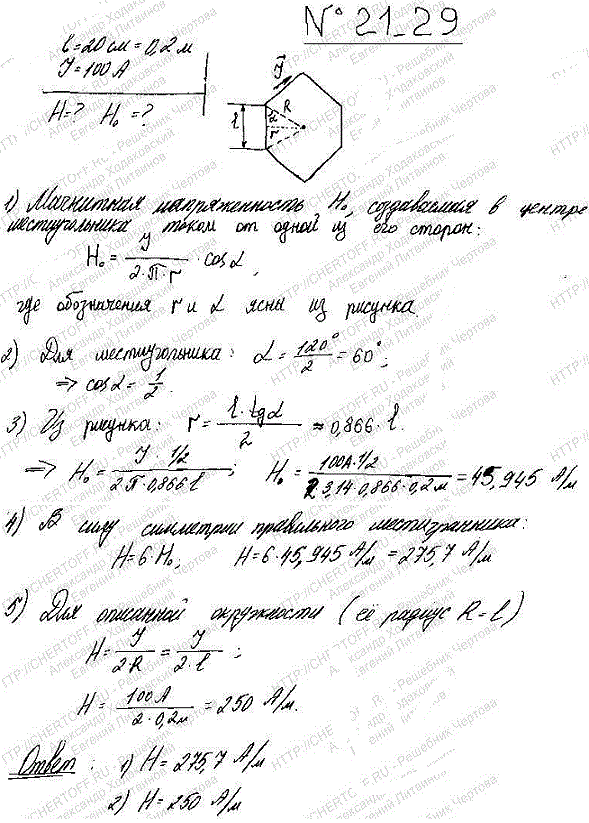 № 21-29
l = 20 см = 0,2 м
I = 100 А
H = ? H₀ = ?
I
R
α
l
r
1) Магнитная напряженность H₀, создаваемая в центре
шестиугольника током от одной из его сторон:
H₀ = I / (2·π·r) · cos α,
где обозначения r и α ясны из рисунка.
2) Для шестиугольника: α = 120° / 2 = 60°;
=> cos α = 1/2.
3) Из рисунка: r = l · tg α / 2 ≈ 0,866 · l.
=> H₀ = I · 1/2 / (2π · 0,866 l); H₀ = 100А · 1/2 / (2 · 3,14 · 0,866 · 0,2 м) = 45,945 А/м
4) В силу симметрии правильного шестигранника:
H = 6 · H₀; H = 6 · 45,945 А/м = 275,7 А/м
5) Для описанной окружности (её радиус R = l)
H = I / (2·R) = I / (2·l);
H = 100 А / (2 · 0,2м) = 250 А/м.
Ответ: 1) H = 275,7 А/м
2) H = 250 А/м
HTTP://CHERTOFF.RU - Решебник Чертова
Александр Ходаковский
Евгений Литвинов